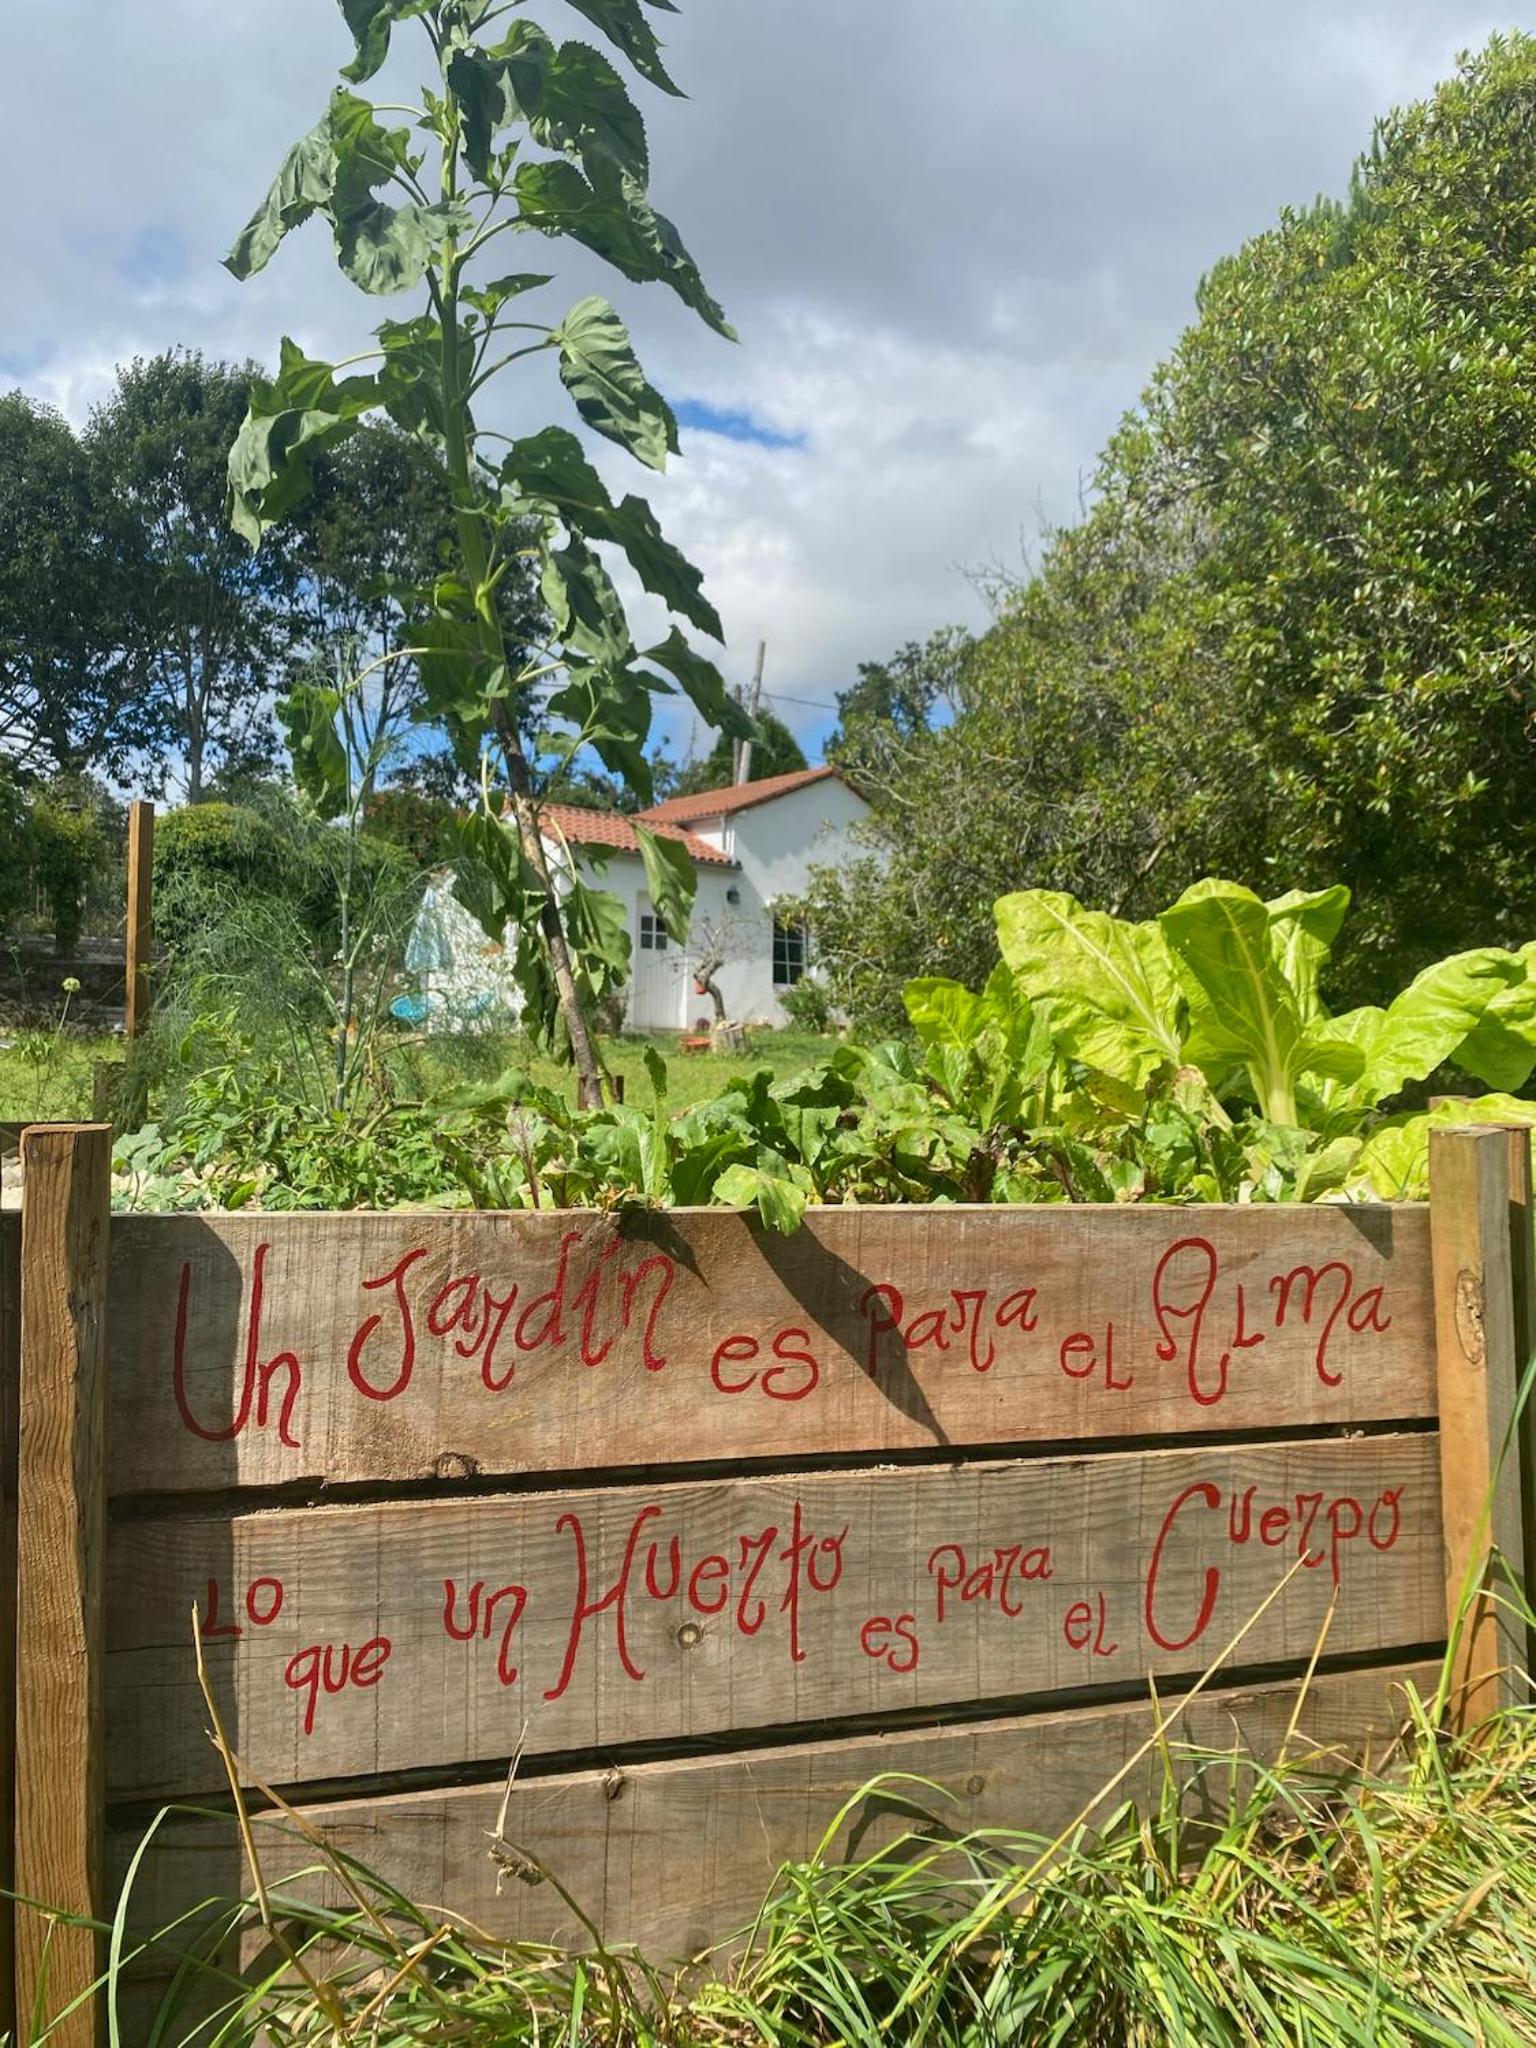 Un Jardín es para el Alma
Lo que un Huerto es para el Cuerpo